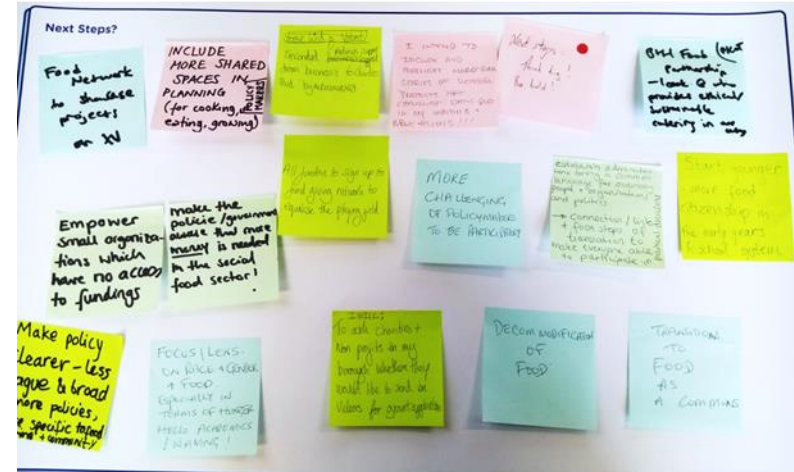 Next Steps?
Food
Network
to showcase
projects
on XV
INCLUDE
MORE SHARED
SPACES IN
PLANNING
(for cooking,
eating, growing)
POLICY
MAKERS
Seconded
from business to include
I INTEND TO
INCLUDE AND
STORIES OF
PROJECTS
IN MY WRITING +
Next steps:
think big!
Be bold!
Partnership
- look @ who
provides ethical/
sustainable
catering in our
Empower
small organiza-
tions which
have no access
to fundings
make the
policie/government
aware that more
money is needed
in the social
food sector!
All funders to sign up to
find giving network to
equalise the playing field
MORE
CHALLENGING
OF POLICYMAKERS
TO BE PARTICIPATORY
language for everyday
and politics
→ connection/link
+ food steps of
translation to
make everyone able
to participate
Start younger
- more food
citizenship in
the early years
& school system
Make policy
clearer - less
vague & broad
more policies,
specific to food
+ community
FOCUS/LENS
ON RACE + GENDER
+ FOOD
ESPECIALLY IN
TERMS OF HUNGER
HELLO ACADEMICS
I WILL:
To ask charities +
non profits in my
borough whether they
would like to send in
videos for grant application
DECOMMODIFICATION
OF
FOOD
TRANSITION
TO
FOOD
AS
A COMMONS